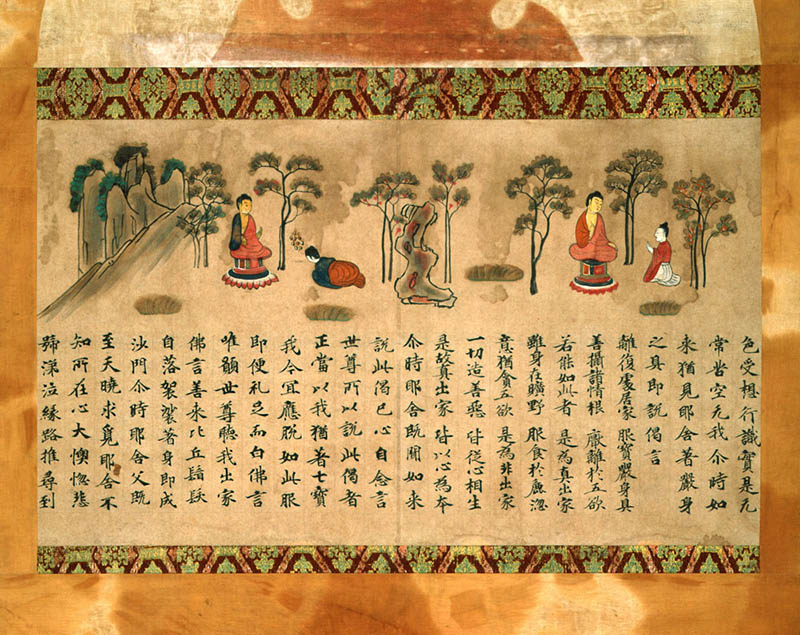 色受想行識實是无
常苦空无我尒時如
来猶見耶舍著嚴身
之具即說偈言
雖復處居家 服寶嚴身具
善攝諸情根 厭離於五欲
若能如此者 是為真出家
雖身在曠野 服食於麁澁
意猶貪五欲 是為非出家
一切造善惡 皆從心相生
是故真出家 皆以心為本
尒時耶舍既聞如来
說此偈已心自念言
世尊所以說此偈者
正當以我猶著七寶
我今宜應脫如此服
即便礼足而白佛言
唯願世尊聽我出家
佛言善来比丘鬚髮
自落袈裟著身即成
沙門尒時耶舍父既
至天曉求覓耶舍不
知所在心大懊惱悲
號涕泣緣路推尋到